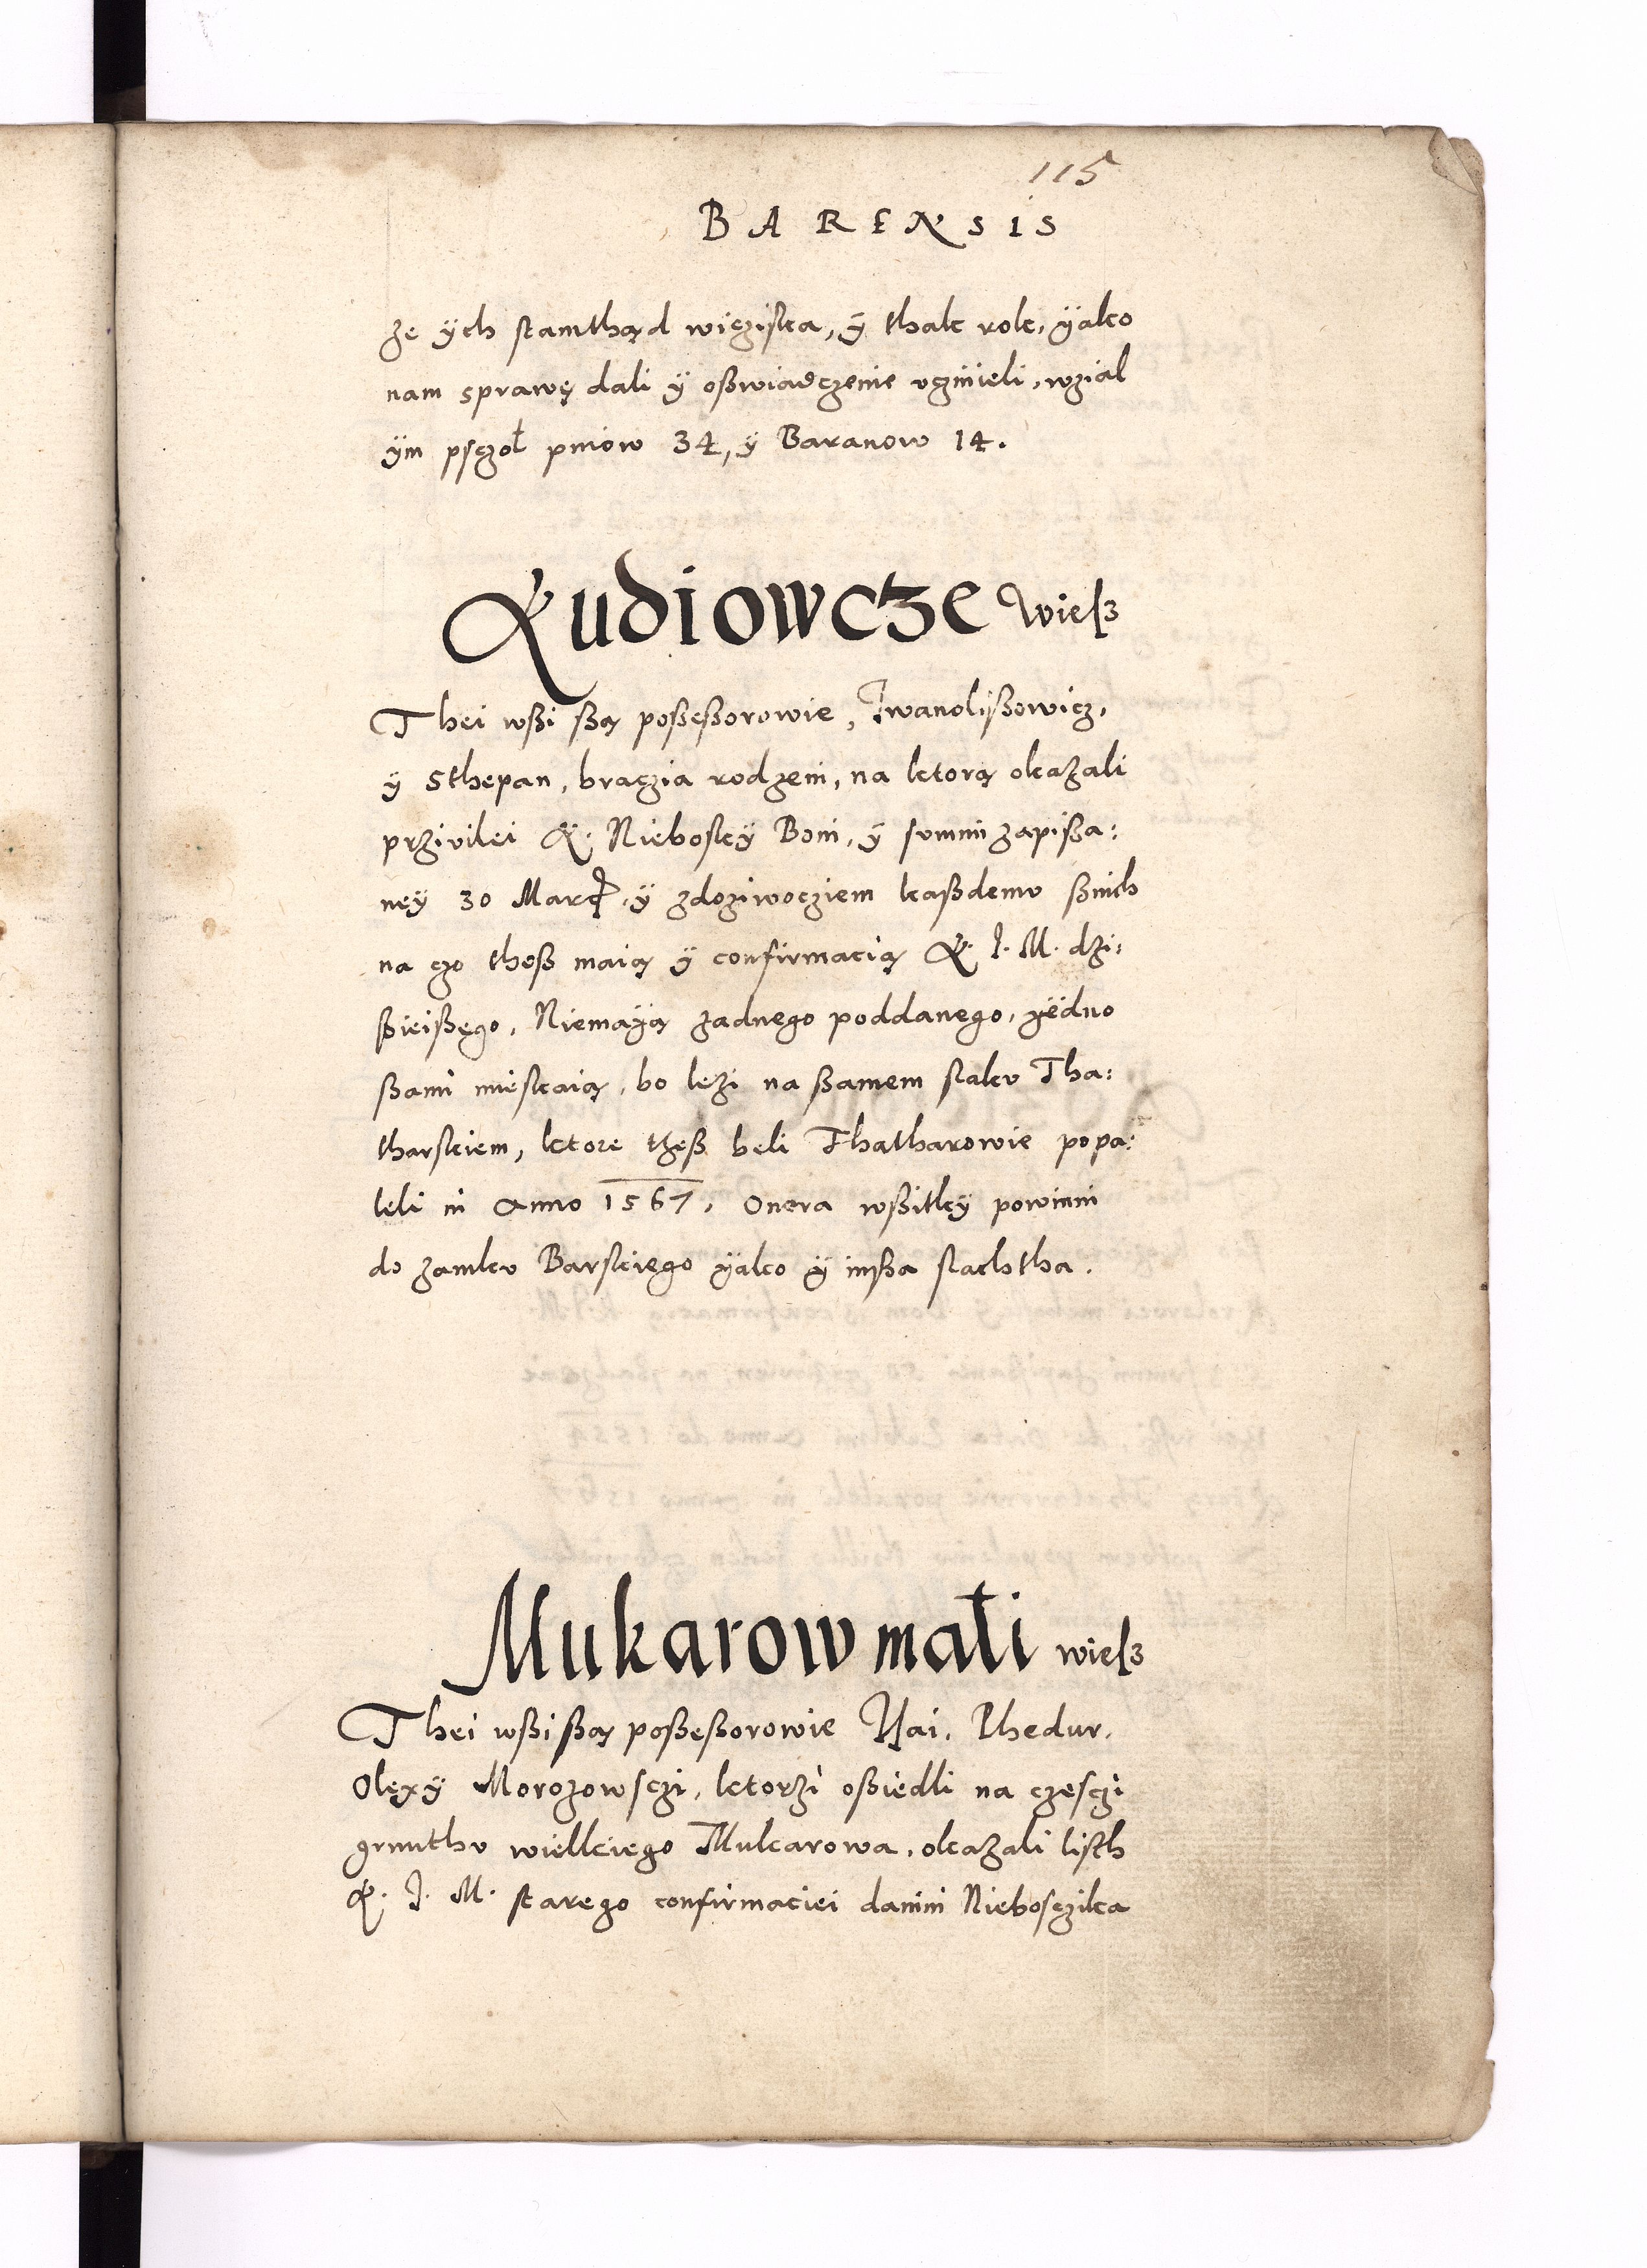 115
BARENSIS
że ÿch stamthąd wicziska, ÿ thak rok, ÿako
nam sprawę dali ÿ oßwiadczenie vczinieli, wział
ÿm psczoł pniow 34, ÿ Baranow 14.
Kudiowcze wiesz
Thei wßi ßą poßeßorowie, Iwanolißowicz,
ÿ Sthepan, braczia rodzeni, na ktorą okazali
prziuilei K. Nieboskÿ Boni, ÿ summi zapißa:
neÿ 30 Marc, ÿ zdoziwocziem kaßdemv ßnich
na czo theß maią ÿ confirmacią K. I. M. dzi:
ßieißego, Niemaÿą zadnego poddanego, ÿedno
ßami mieskaią, bo lezi na ßamem slakv Tha:
tharskiem, ktore theß beli Thatharowie popa:
leli in anno 1567, Onera wßitkÿ powinni
do zamkv Barskiego ÿako ÿ inßa slachtha.
Mukarow małi wiesz
Thei wßi ßą poßeßorowie Ihai, Phedur,
Olexÿ Morozowsczi, ktorzi oßiedli na czesczi
grunthv wielkiego Mukarowa, okazali listh
K. I. M. starego confirmaciei danini Niebosczika